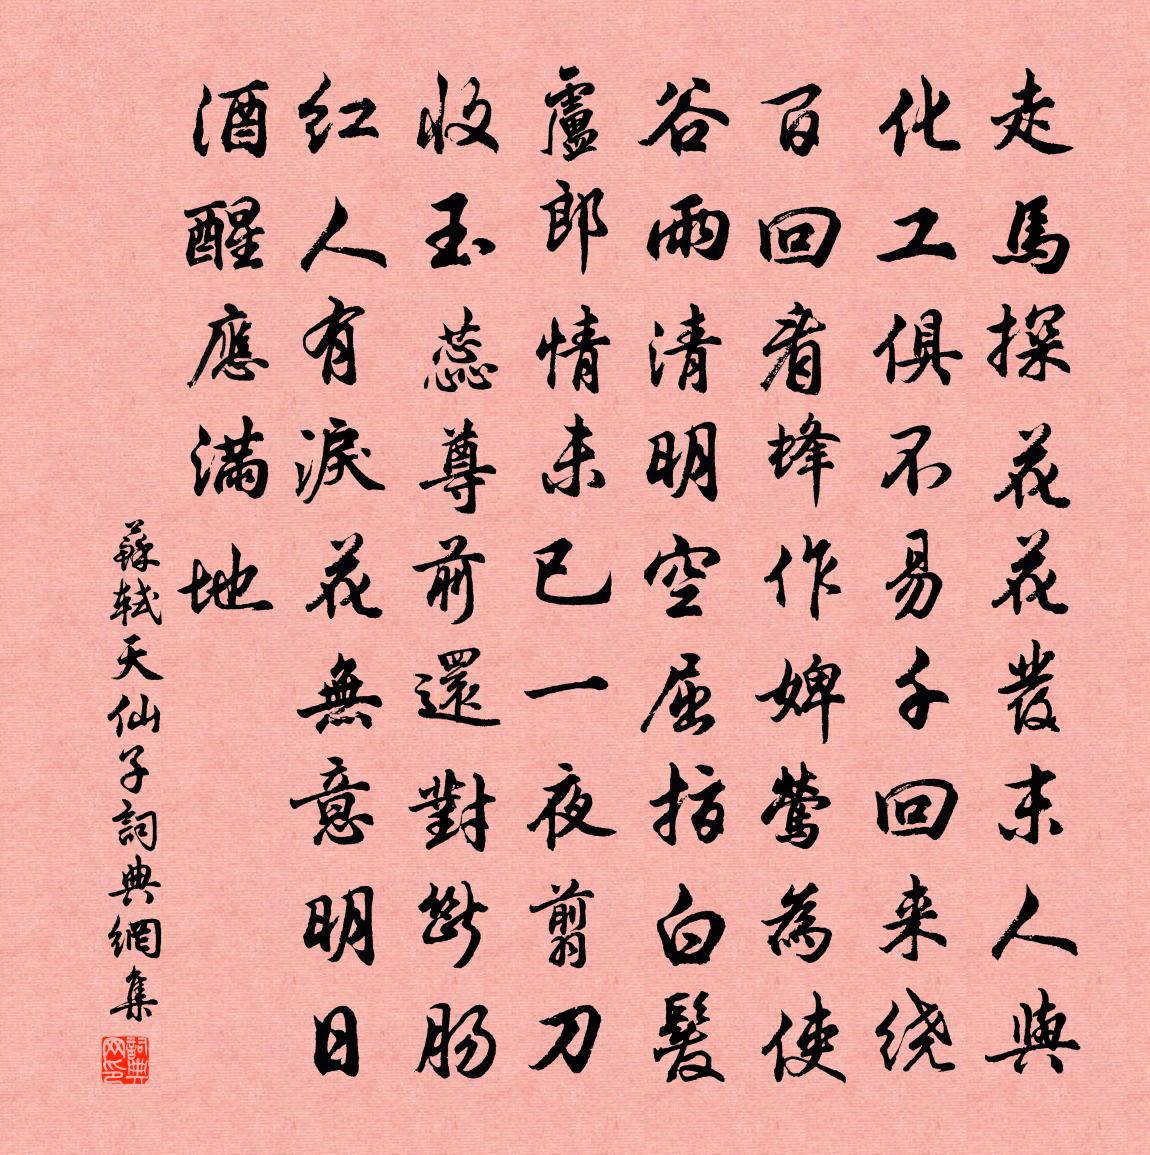 走馬探花花發未人與
化工俱不易千回来绕
百回看蜂作婢莺為使
谷雨清明空屈指白髮
盧郎情未已一夜翦刀
收玉蕊尊前還對斷肠
红人有淚花無意明日
酒醒應满地
蘇軾天仙子詞典網集
詞典网印